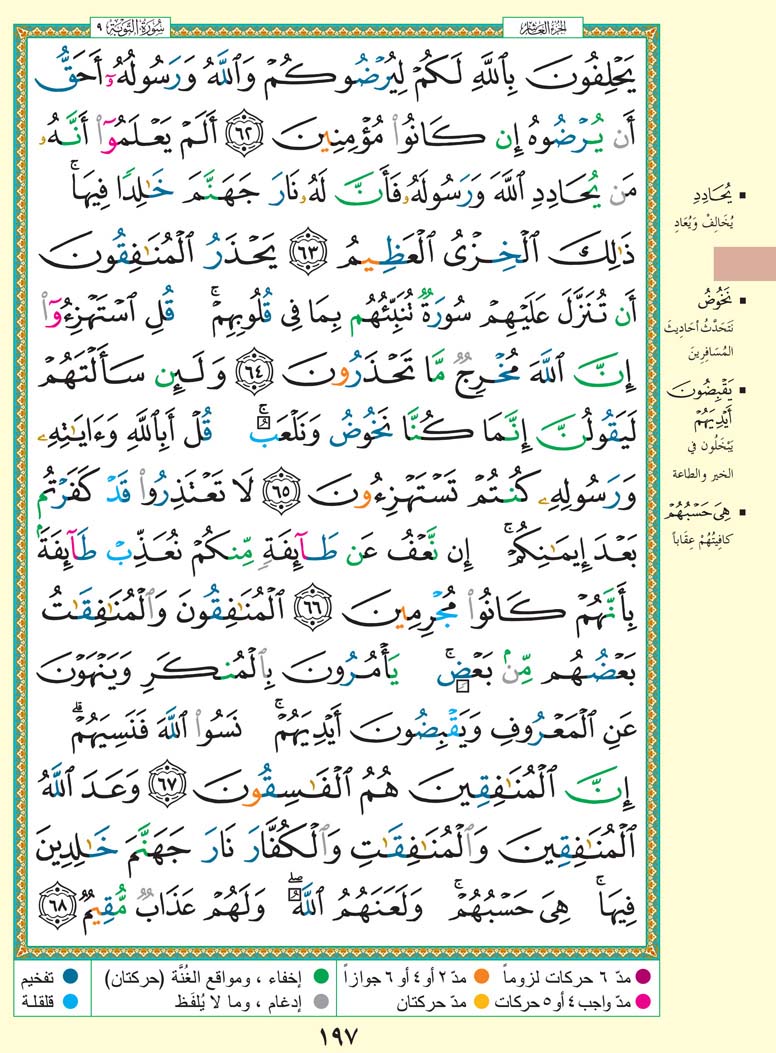 الجزء العاشر
سورة التوبة ٩
يَحْلِفُونَ بِٱللَّهِ لَكُمْ لِيُرْضُوكُمْ وَٱللَّهُ وَرَسُولُهُۥٓ أَحَقُّ
أَن يُرْضُوهُ إِن كَانُوا۟ مُؤْمِنِينَ ٦٢ أَلَمْ يَعْلَمُوٓا۟ أَنَّهُۥ
مَن يُحَادِدِ ٱللَّهَ وَرَسُولَهُۥ فَأَنَّ لَهُۥ نَارَ جَهَنَّمَ خَٰلِدًا فِيهَا ۚ
ذَٰلِكَ ٱلْخِزْىُ ٱلْعَظِيمُ ٦٣ يَحْذَرُ ٱلْمُنَٰفِقُونَ
أَن تُنَزَّلَ عَلَيْهِمْ سُورَةٌ تُنَبِّئُهُم بِمَا فِى قُلُوبِهِمْ ۚ قُلِ ٱسْتَهْزِءُوٓا۟
إِنَّ ٱللَّهَ مُخْرِجٌ مَّا تَحْذَرُونَ ٦٤ وَلَئِن سَأَلْتَهُمْ
لَيَقُولُنَّ إِنَّمَا كُنَّا نَخُوضُ وَنَلْعَبُ ۚ قُلْ أَبِٱللَّهِ وَءَايَٰتِهِۦ
وَرَسُولِهِۦ كُنتُمْ تَسْتَهْزِءُونَ ٦٥ لَا تَعْتَذِرُوا۟ قَدْ كَفَرْتُم
بَعْدَ إِيمَٰنِكُمْ ۚ إِن نَّعْفُ عَن طَآئِفَةٍ مِّنكُمْ نُعَذِّبْ طَآئِفَةًۢ
بِأَنَّهُمْ كَانُوا۟ مُجْرِمِينَ ٦٦ ٱلْمُنَٰفِقُونَ وَٱلْمُنَٰفِقَٰتُ
بَعْضُهُم مِّنۢ بَعْضٍ ۚ يَأْمُرُونَ بِٱلْمُنكَرِ وَيَنْهَوْنَ
عَنِ ٱلْمَعْرُوفِ وَيَقْبِضُونَ أَيْدِيَهُمْ ۚ نَسُوا۟ ٱللَّهَ فَنَسِيَهُمْ ۗ
إِنَّ ٱلْمُنَٰفِقِينَ هُمُ ٱلْفَٰسِقُونَ ٦٧ وَعَدَ ٱللَّهُ
ٱلْمُنَٰفِقِينَ وَٱلْمُنَٰفِقَٰتِ وَٱلْكُفَّارَ نَارَ جَهَنَّمَ خَٰلِدِينَ
فِيهَا ۚ هِىَ حَسْبُهُمْ ۚ وَلَعَنَهُمُ ٱللَّهُ ۖ وَلَهُمْ عَذَابٌ مُّقِيمٌ ٦٨
▪ يُحَادِدِ
يُخَالِفْ وَيُعَادِ
▪ نَخُوضُ
نَتَحَدَّثُ أحَادِيثَ
المُسَافِرِينَ
▪ يَقْبِضُونَ
أَيْدِيَهُمْ
يَبْخَلُون في
الخير والطاعة
▪ هِىَ حَسْبُهُمْ
كافِيتُهُمْ عِقَاباً
مدّ ٦ حركات لزوماً مدّ ٢ أو ٤ أو ٦ جوازاً إخفاء ، ومواقع الغُنَّة (حركتان) تفخيم
مدّ واجب ٤ أو ٥ حركات مدّ حركتان إدغام ، وما لا يُلفَظ قلقلة
١٩٧